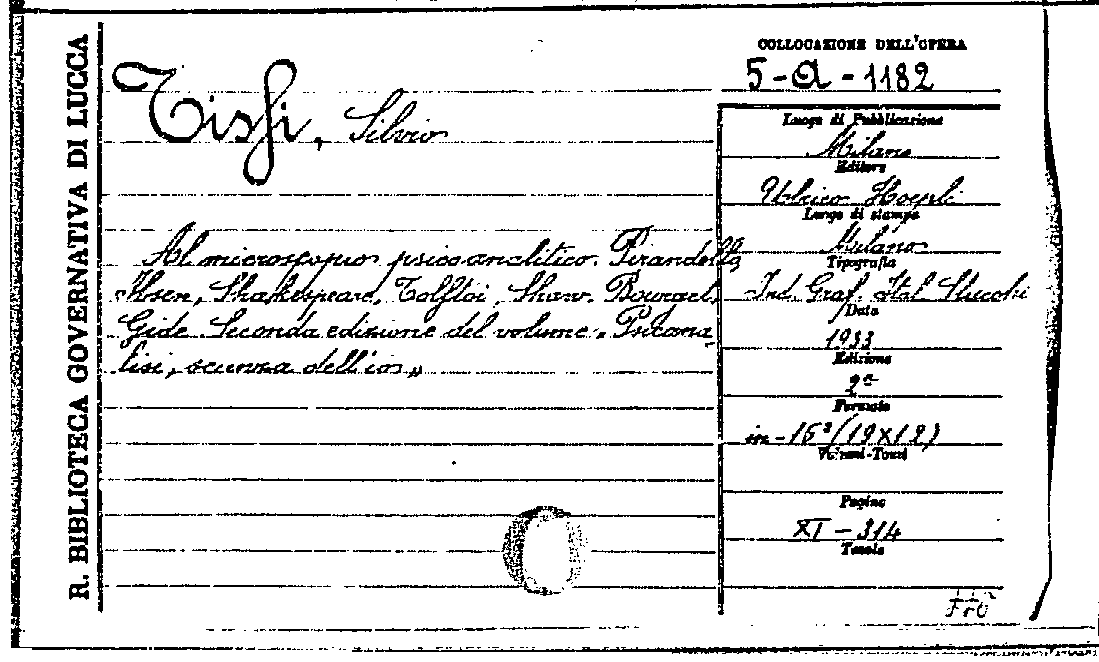 R. BIBLIOTECA GOVERNATIVA DI LUCCA
COLLOCAZIONE DELL'OPERA
5-A-1182
Tissi, Silvio
Luogo di Pubblicazione
Milano
Editore
Ulrico Hoepli
Luogo di stampa
Milano
Tipografia
Ind. Graf. Ital. Stucchi
Data
1933
Edizione
2a
Formato
in-16°(19x12)
Volumi-Tomi
Pagine
XI-314
Tavole
Al microscopio psicoanalitico. Pirandello,
Ibsen, Shakespeare, Tolstoi, Shaw. Bourget,
Gide. Seconda edizione del volume "Psicona
lisi, scienza dell'io"